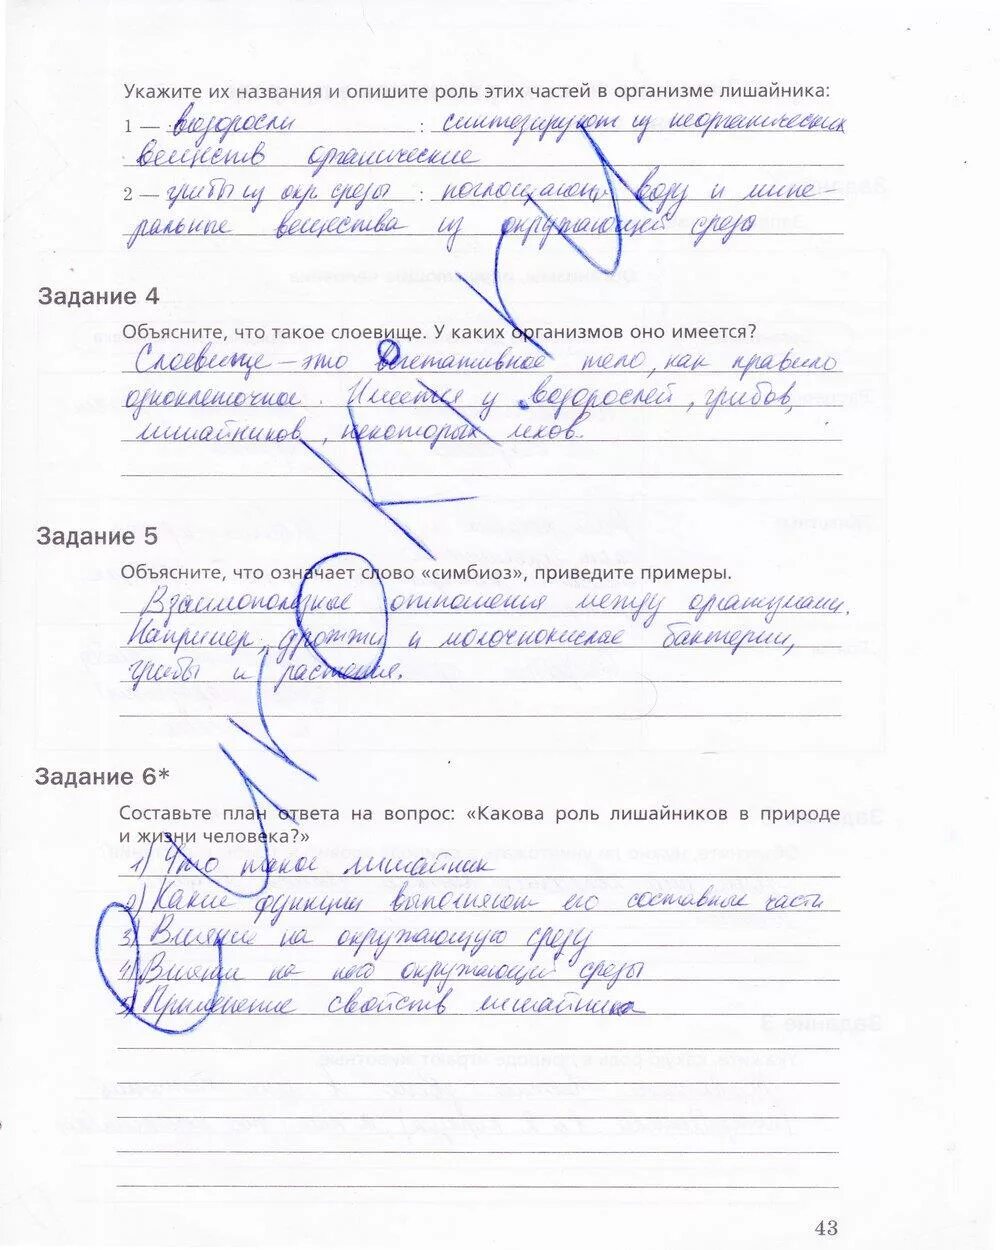 Укажите их названия и опишите роль этих частей в организме лишайника:
1 — водоросли : синтезируют из неорганических
веществ органические
2 — грибы из окр. среды : поглощают воду и мине
ральные вещества из окружающей среды
Задание 4
Объясните, что такое слоевище. У каких организмов оно имеется?
Слоевище — это вегетативное тело, как правило
одноклеточное. Имеется у водорослей, грибов,
лишайников, некоторых мхов.
Задание 5
Объясните, что означает слово «симбиоз», приведите примеры.
Взаимополезные отношения между организмами.
Например, дрожжи и молочнокислые бактерии,
грибы и растения.
Задание 6*
Составьте план ответа на вопрос: «Какова роль лишайников в природе
и жизни человека?»
1) Что такое лишайник
2) Какие функции выполняют его составные части
3) Влияние на окружающую среду
4) Влияние на него окружающей среды
5) Применение свойств лишайника
43